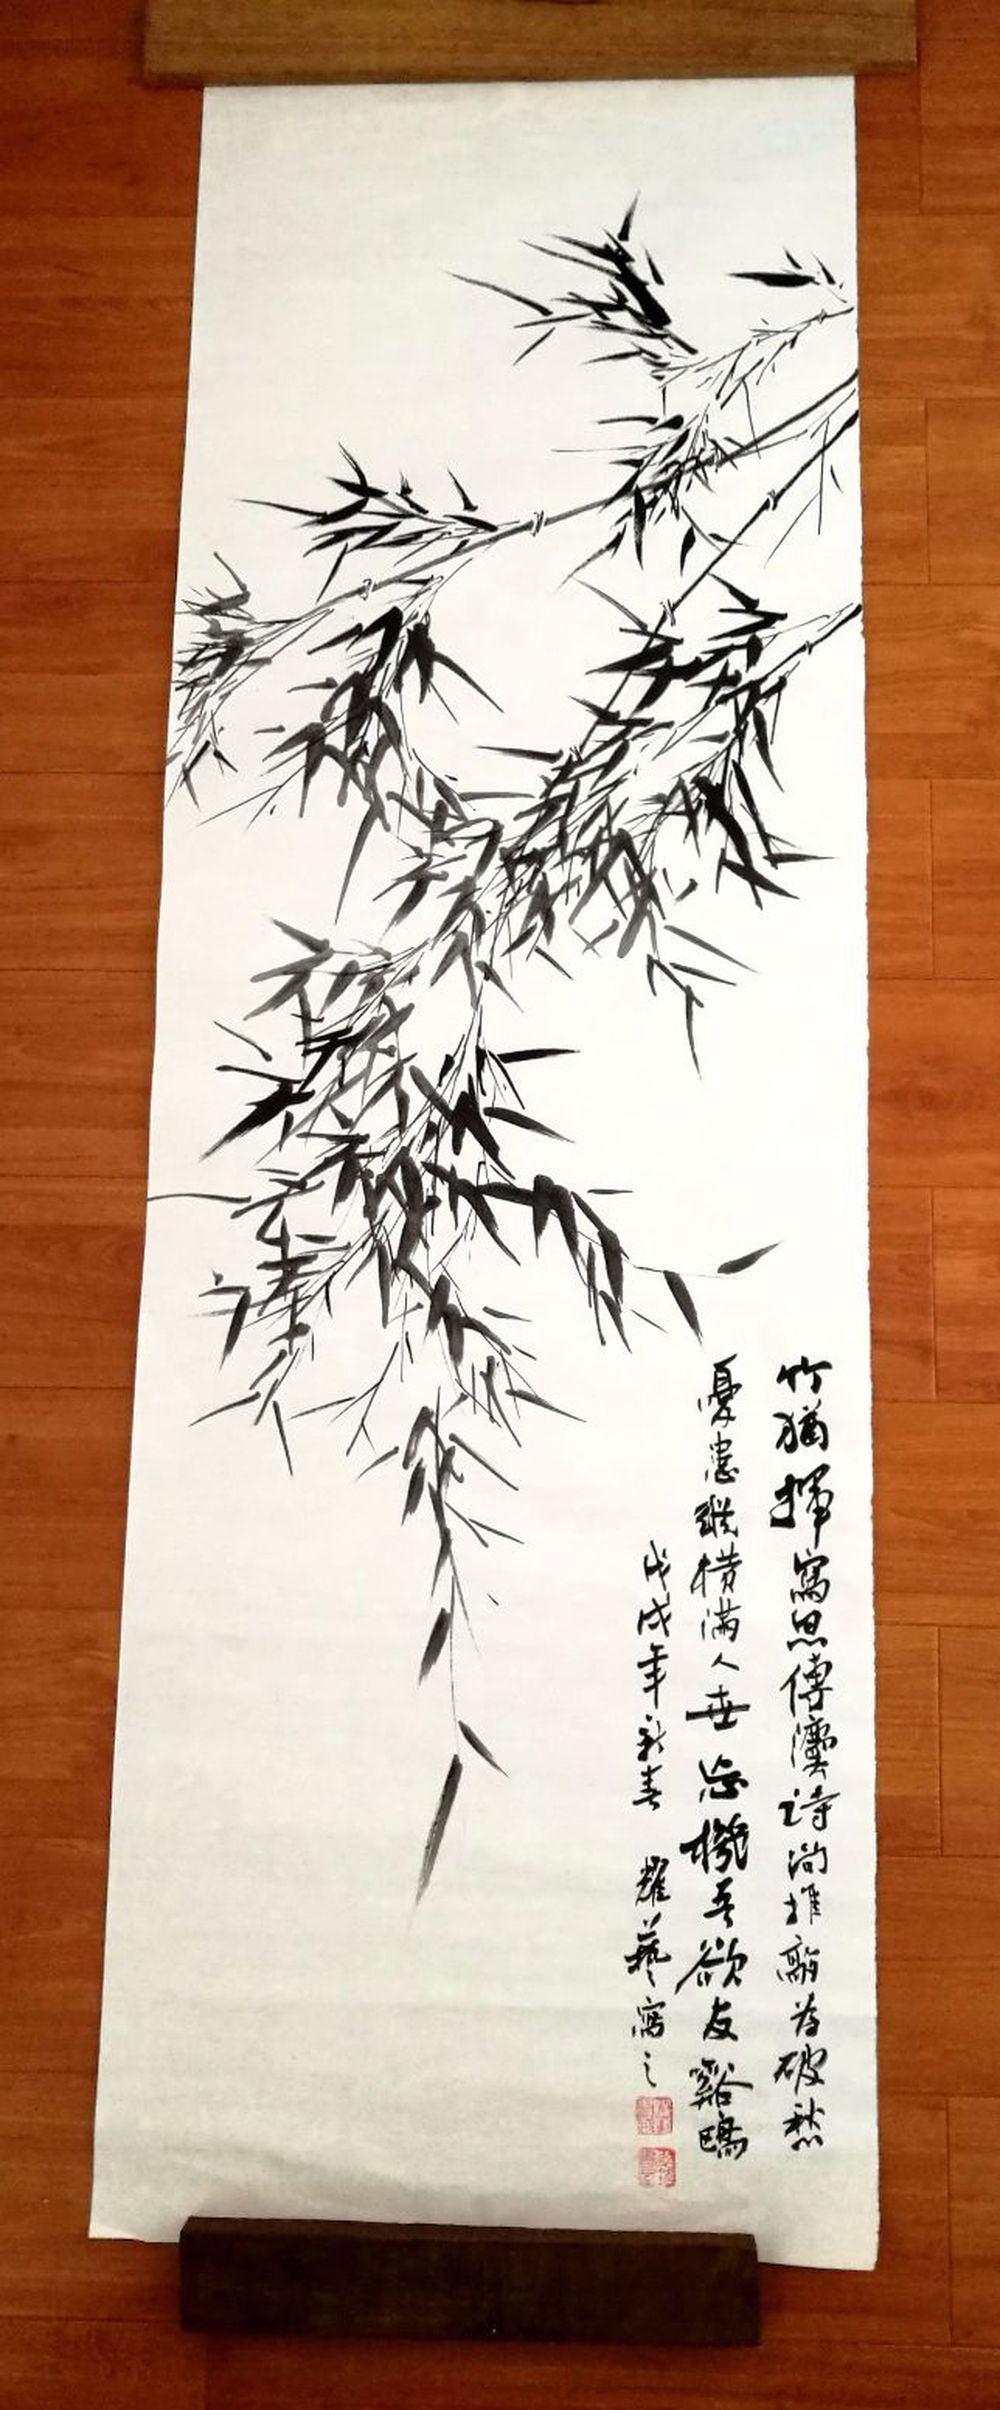 竹猶揮寫思傳詩尚推敲為破愁
憂患縱橫滿人世忘機吾欲友谿鷗
戊戌年新春 耀藝寫之